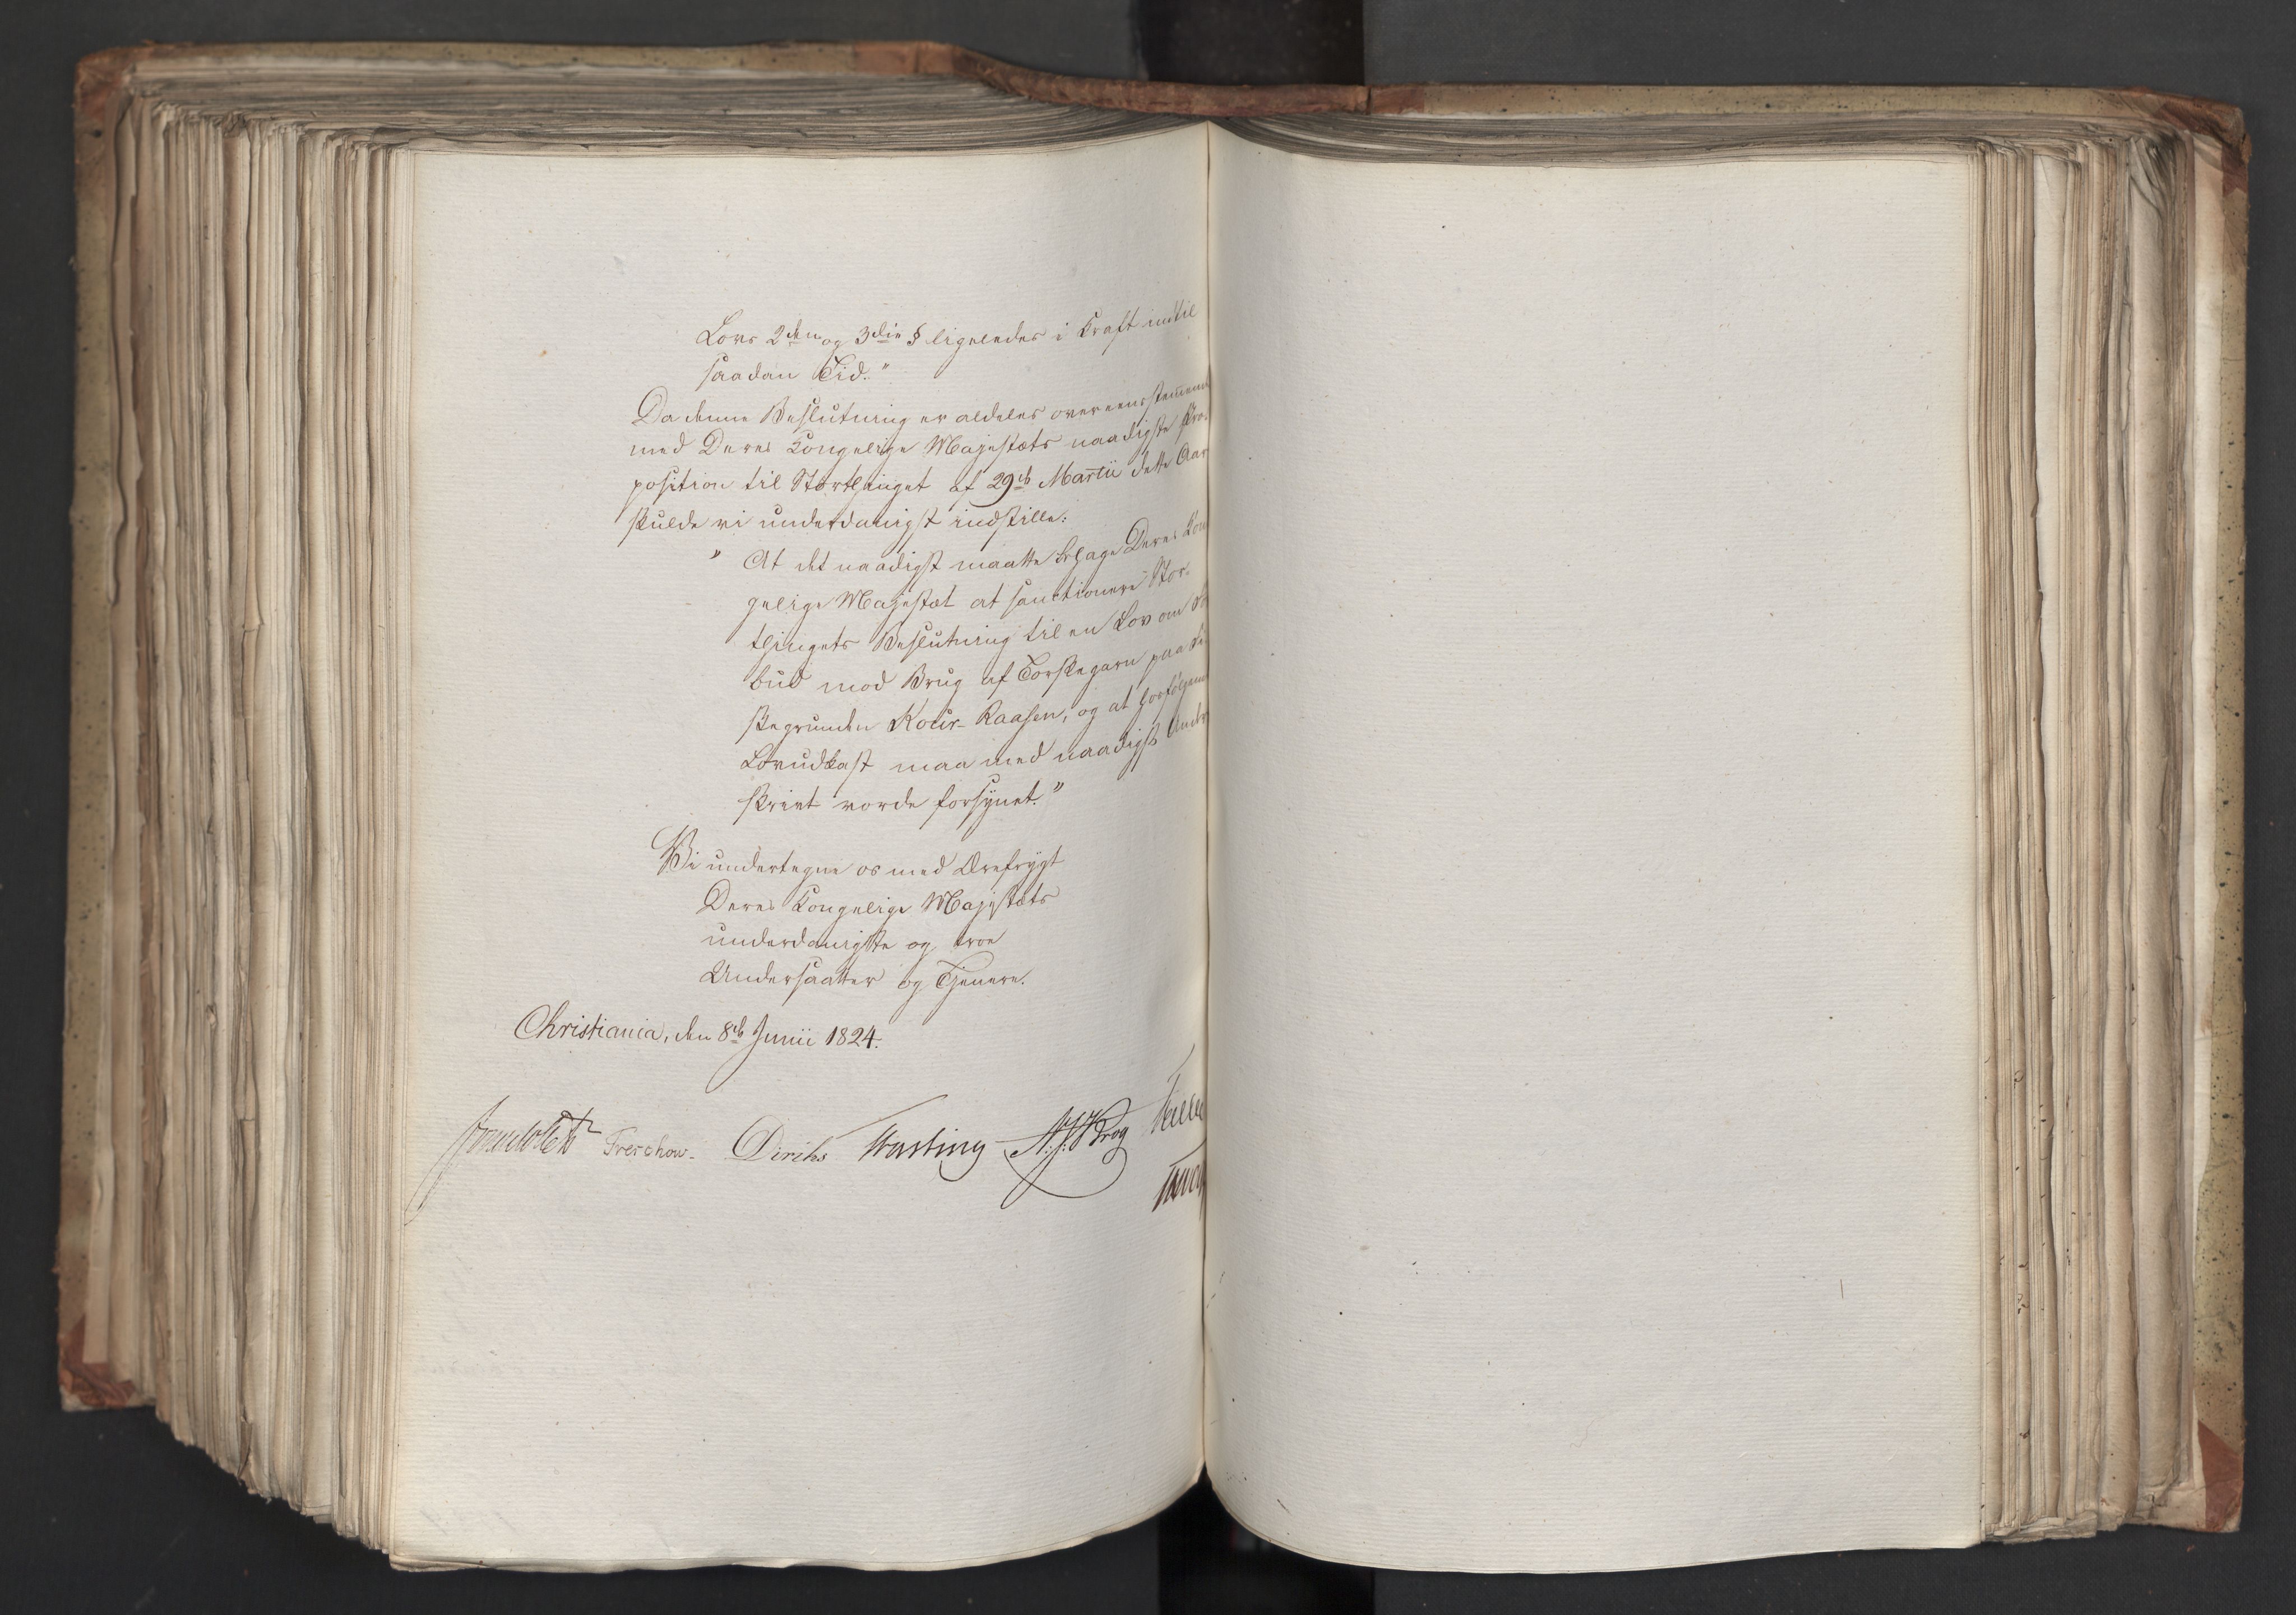 Lovs 2den og 3die § ligeledes i Kraft indtil
saadan Tid."
Da denne Beslutning er aldeles overeensstemmende
med Deres Kongelige Majestæts naadigste Pro-
position til Storthinget af 29de Martii dette Aar
skulde vi underdanigst indstille:
" At det naadigst maatte behage Deres Kon-
gelige Majestæt at sanctionere Stor-
thingets Beslutning til en Lov om For-
bud mod Brug af Torskegarn paa Fi-
skegrunden Rour-Raasen, og at hosfølgende
Lovudkast maa med naadigst Under-
skrivt vorde forsynet."
Vi undertegne os med Ærefrygt
Deres Kongelige Majestæts
underdanigste og troe
Undersaatter og Tjenere.
Christiania, den 8de Junii 1824.
Treschow. Diriks Vasting N.J.Krog